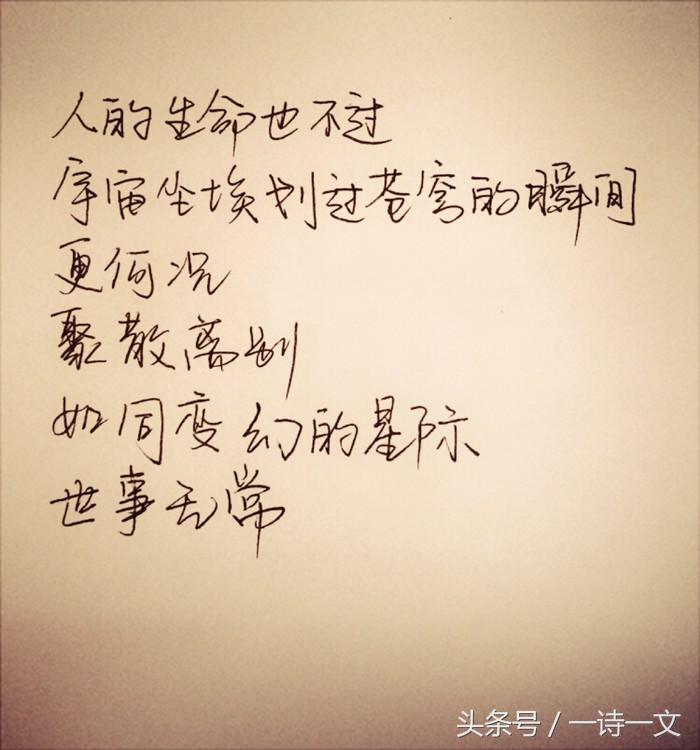 人的生命也不过
宇宙尘埃划过苍穹的瞬间
更何况
聚散离别
如同变幻的星际
世事无常
头条号 / 一诗一文